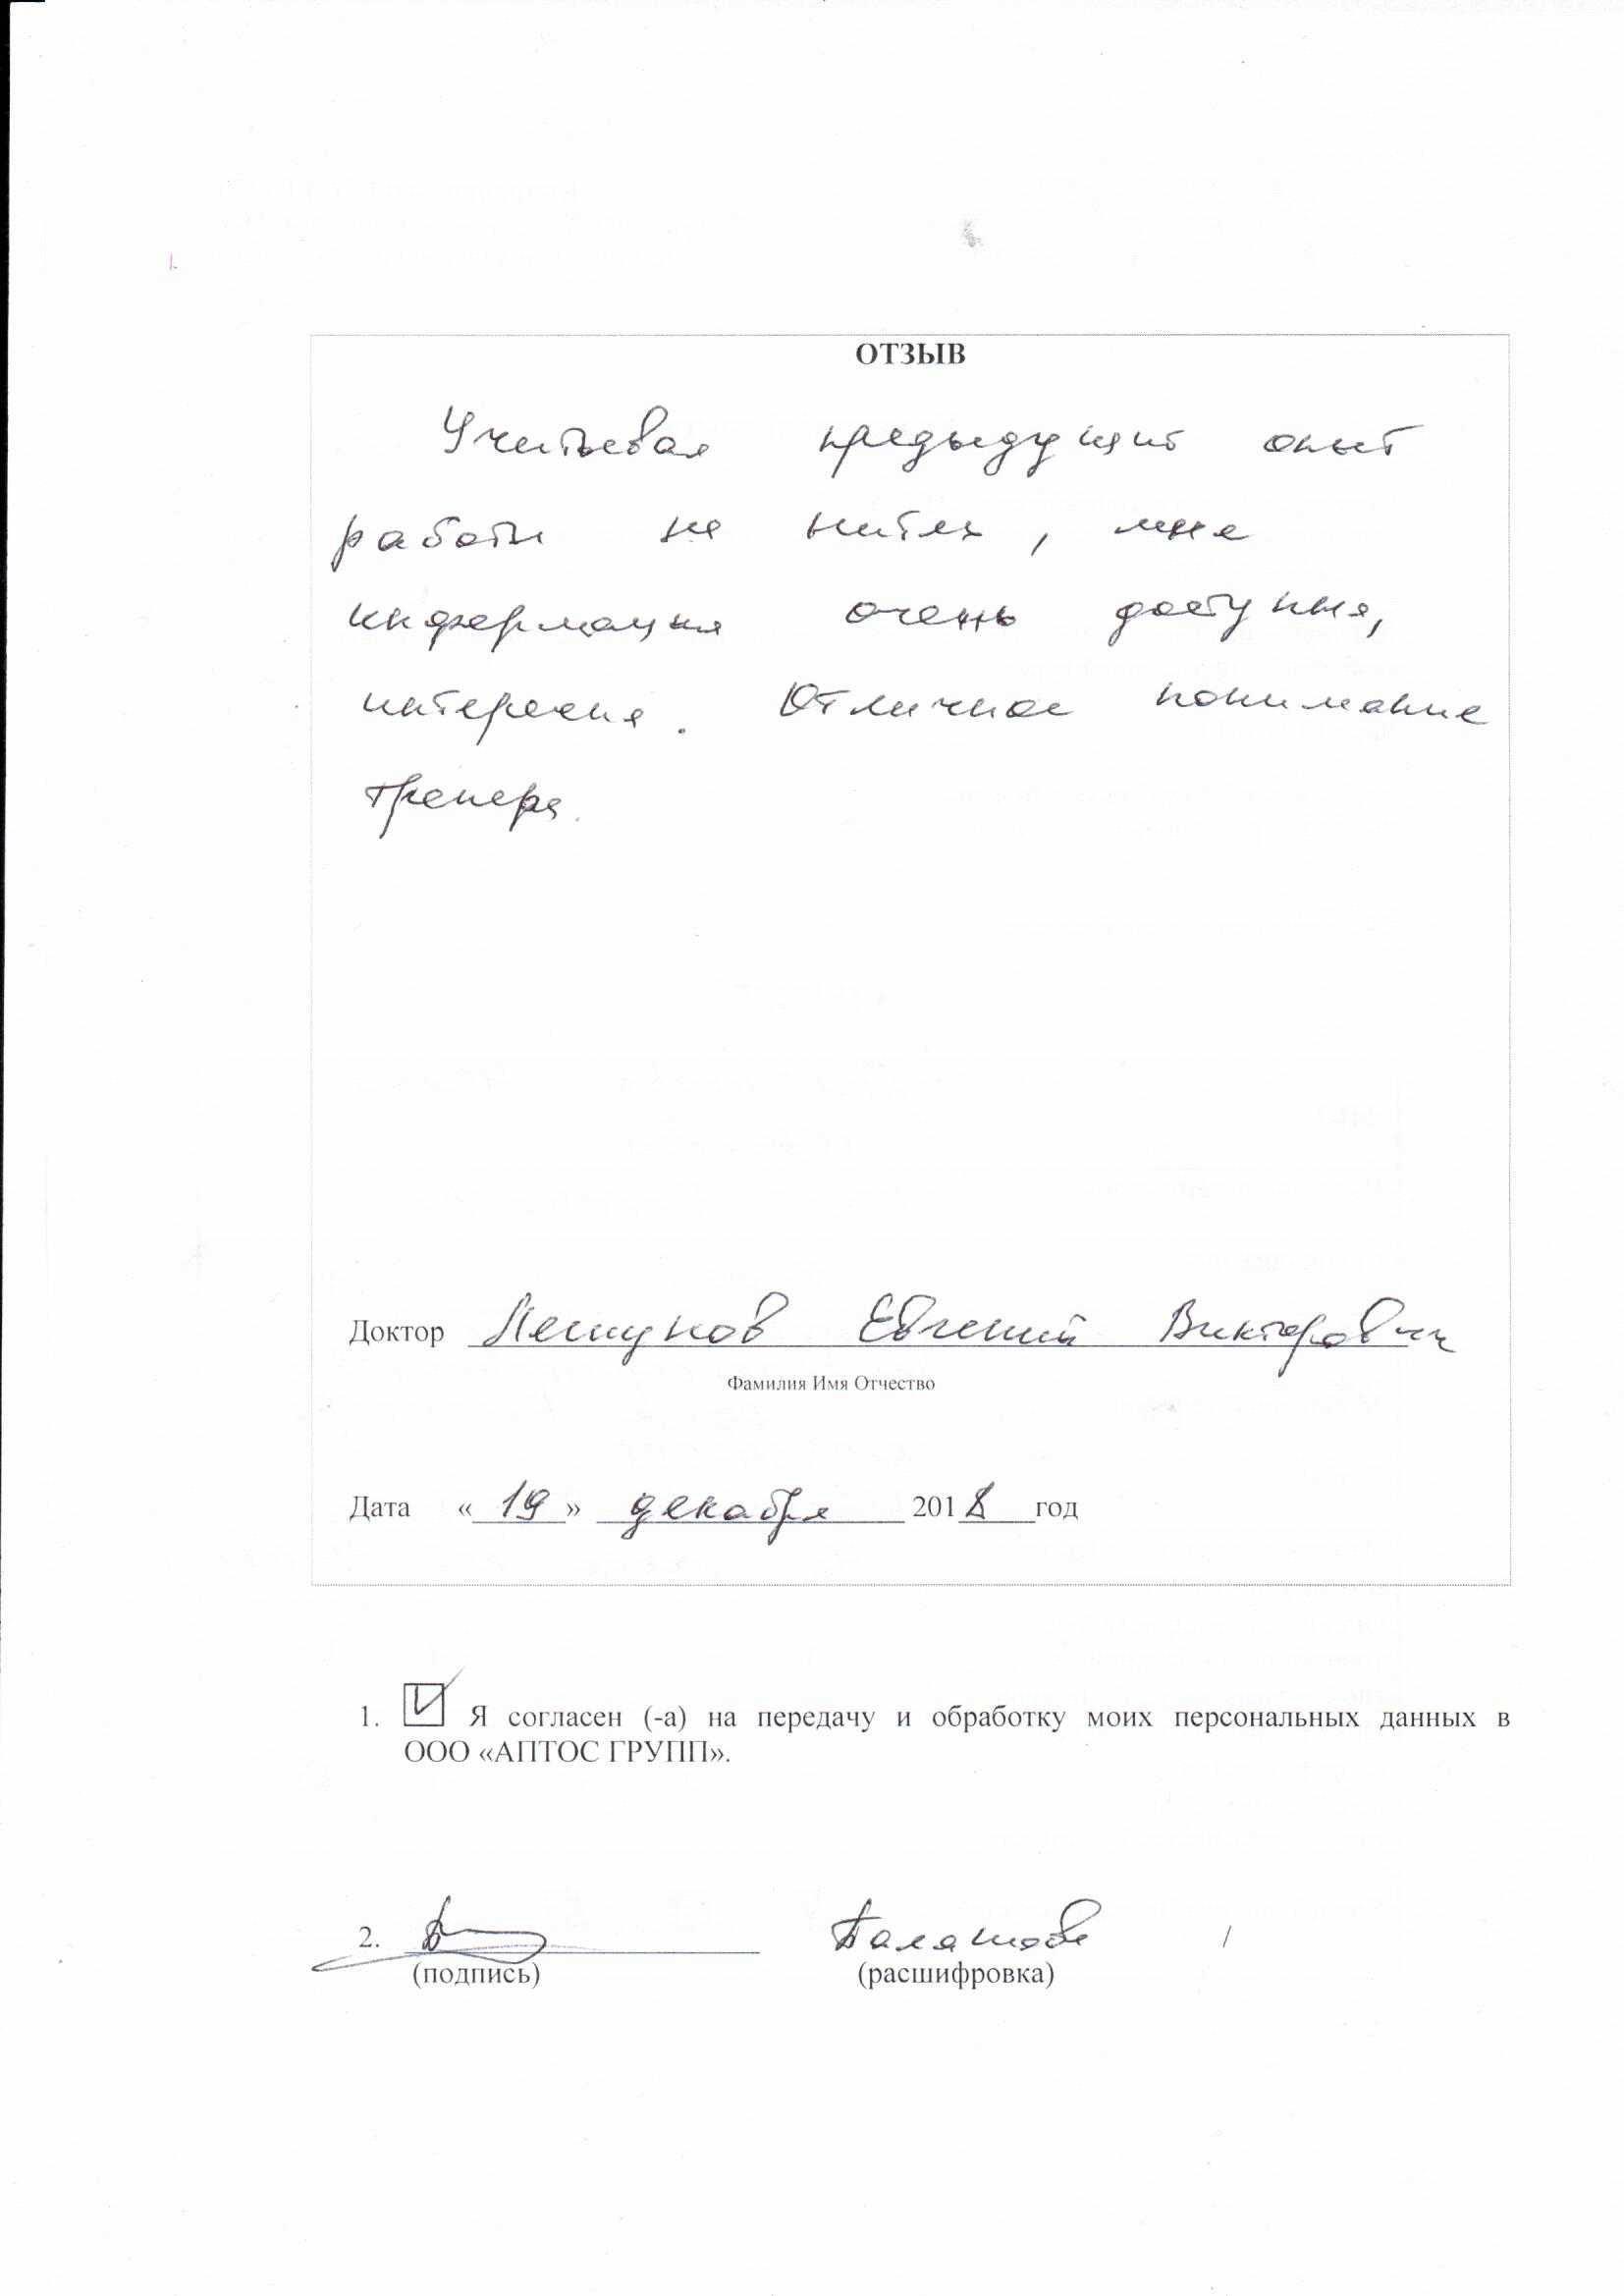 ОТЗЫВ
Учитывая предыдущий опыт
работы на нитях, мне
информация очень доступна,
интересна. Отличное понимание
тренера.
Доктор Лешунов Евгений Викторович
Фамилия Имя Отчество
Дата «19» декабря 2018 год
1. Я согласен (-а) на передачу и обработку моих персональных данных в
ООО «АПТОС ГРУПП».
2. Балашова /
(подпись) (расшифровка)